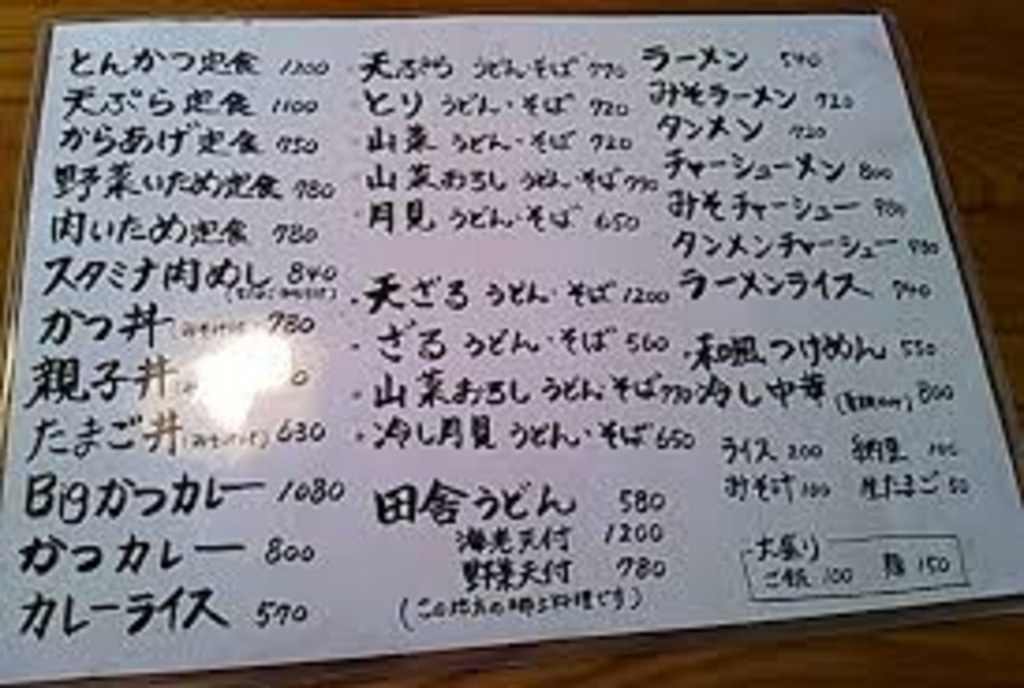 とんかつ定食 1200
天ぷら定食 1100
からあげ定食 750
野菜いため定食 780
肉いため定食 780
スタミナ肉めし 840
かつ丼 780
親子丼
たまご丼 (みそ汁付) 630
Bigかつカレー 1080
かつカレー 800
カレーライス 570
・天ぷら うどん・そば 770
・とり うどん・そば 720
・山菜 うどん・そば 720
・山菜おろし うどん・そば 770
・月見 うどん・そば 650
・天ざる うどん・そば 1200
・ざる うどん・そば 560
・山菜おろし うどん・そば 770
・冷し月見 うどん・そば 650
田舎うどん 580
海老天付 1200
野菜天付 780
(この地方の郷土料理です)
ラーメン 540
みそラーメン 720
タンメン 720
チャーシューメン 800
みそチャーシュー
タンメンチャーシュー
ラーメンライス 740
・和風つけめん 550
冷し中華 800
ライス 200 納豆 100
みそ汁 100 生たまご 50
大盛り
ご飯 100 麺 150